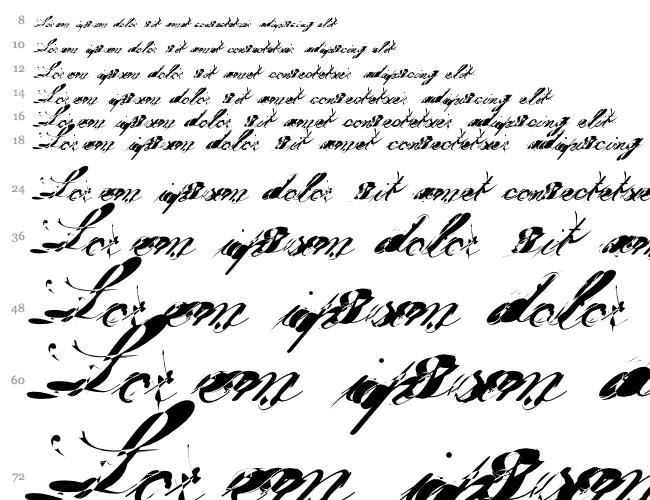 8 Lorem ipsum dolor sit amet consectetuer adipiscing elit
10 Lorem ipsum dolor sit amet consectetuer adipiscing elit
12 Lorem ipsum dolor sit amet consectetuer adipiscing elit
14 Lorem ipsum dolor sit amet consectetuer adipiscing elit
16 Lorem ipsum dolor sit amet consectetuer adipiscing elit
18 Lorem ipsum dolor sit amet consectetuer adipiscing
24 Lorem ipsum dolor sit amet consectetue
36 Lorem ipsum dolor sit am
48 Lorem ipsum dolor
60 Lorem ipsum d
72 Lorem ipsum